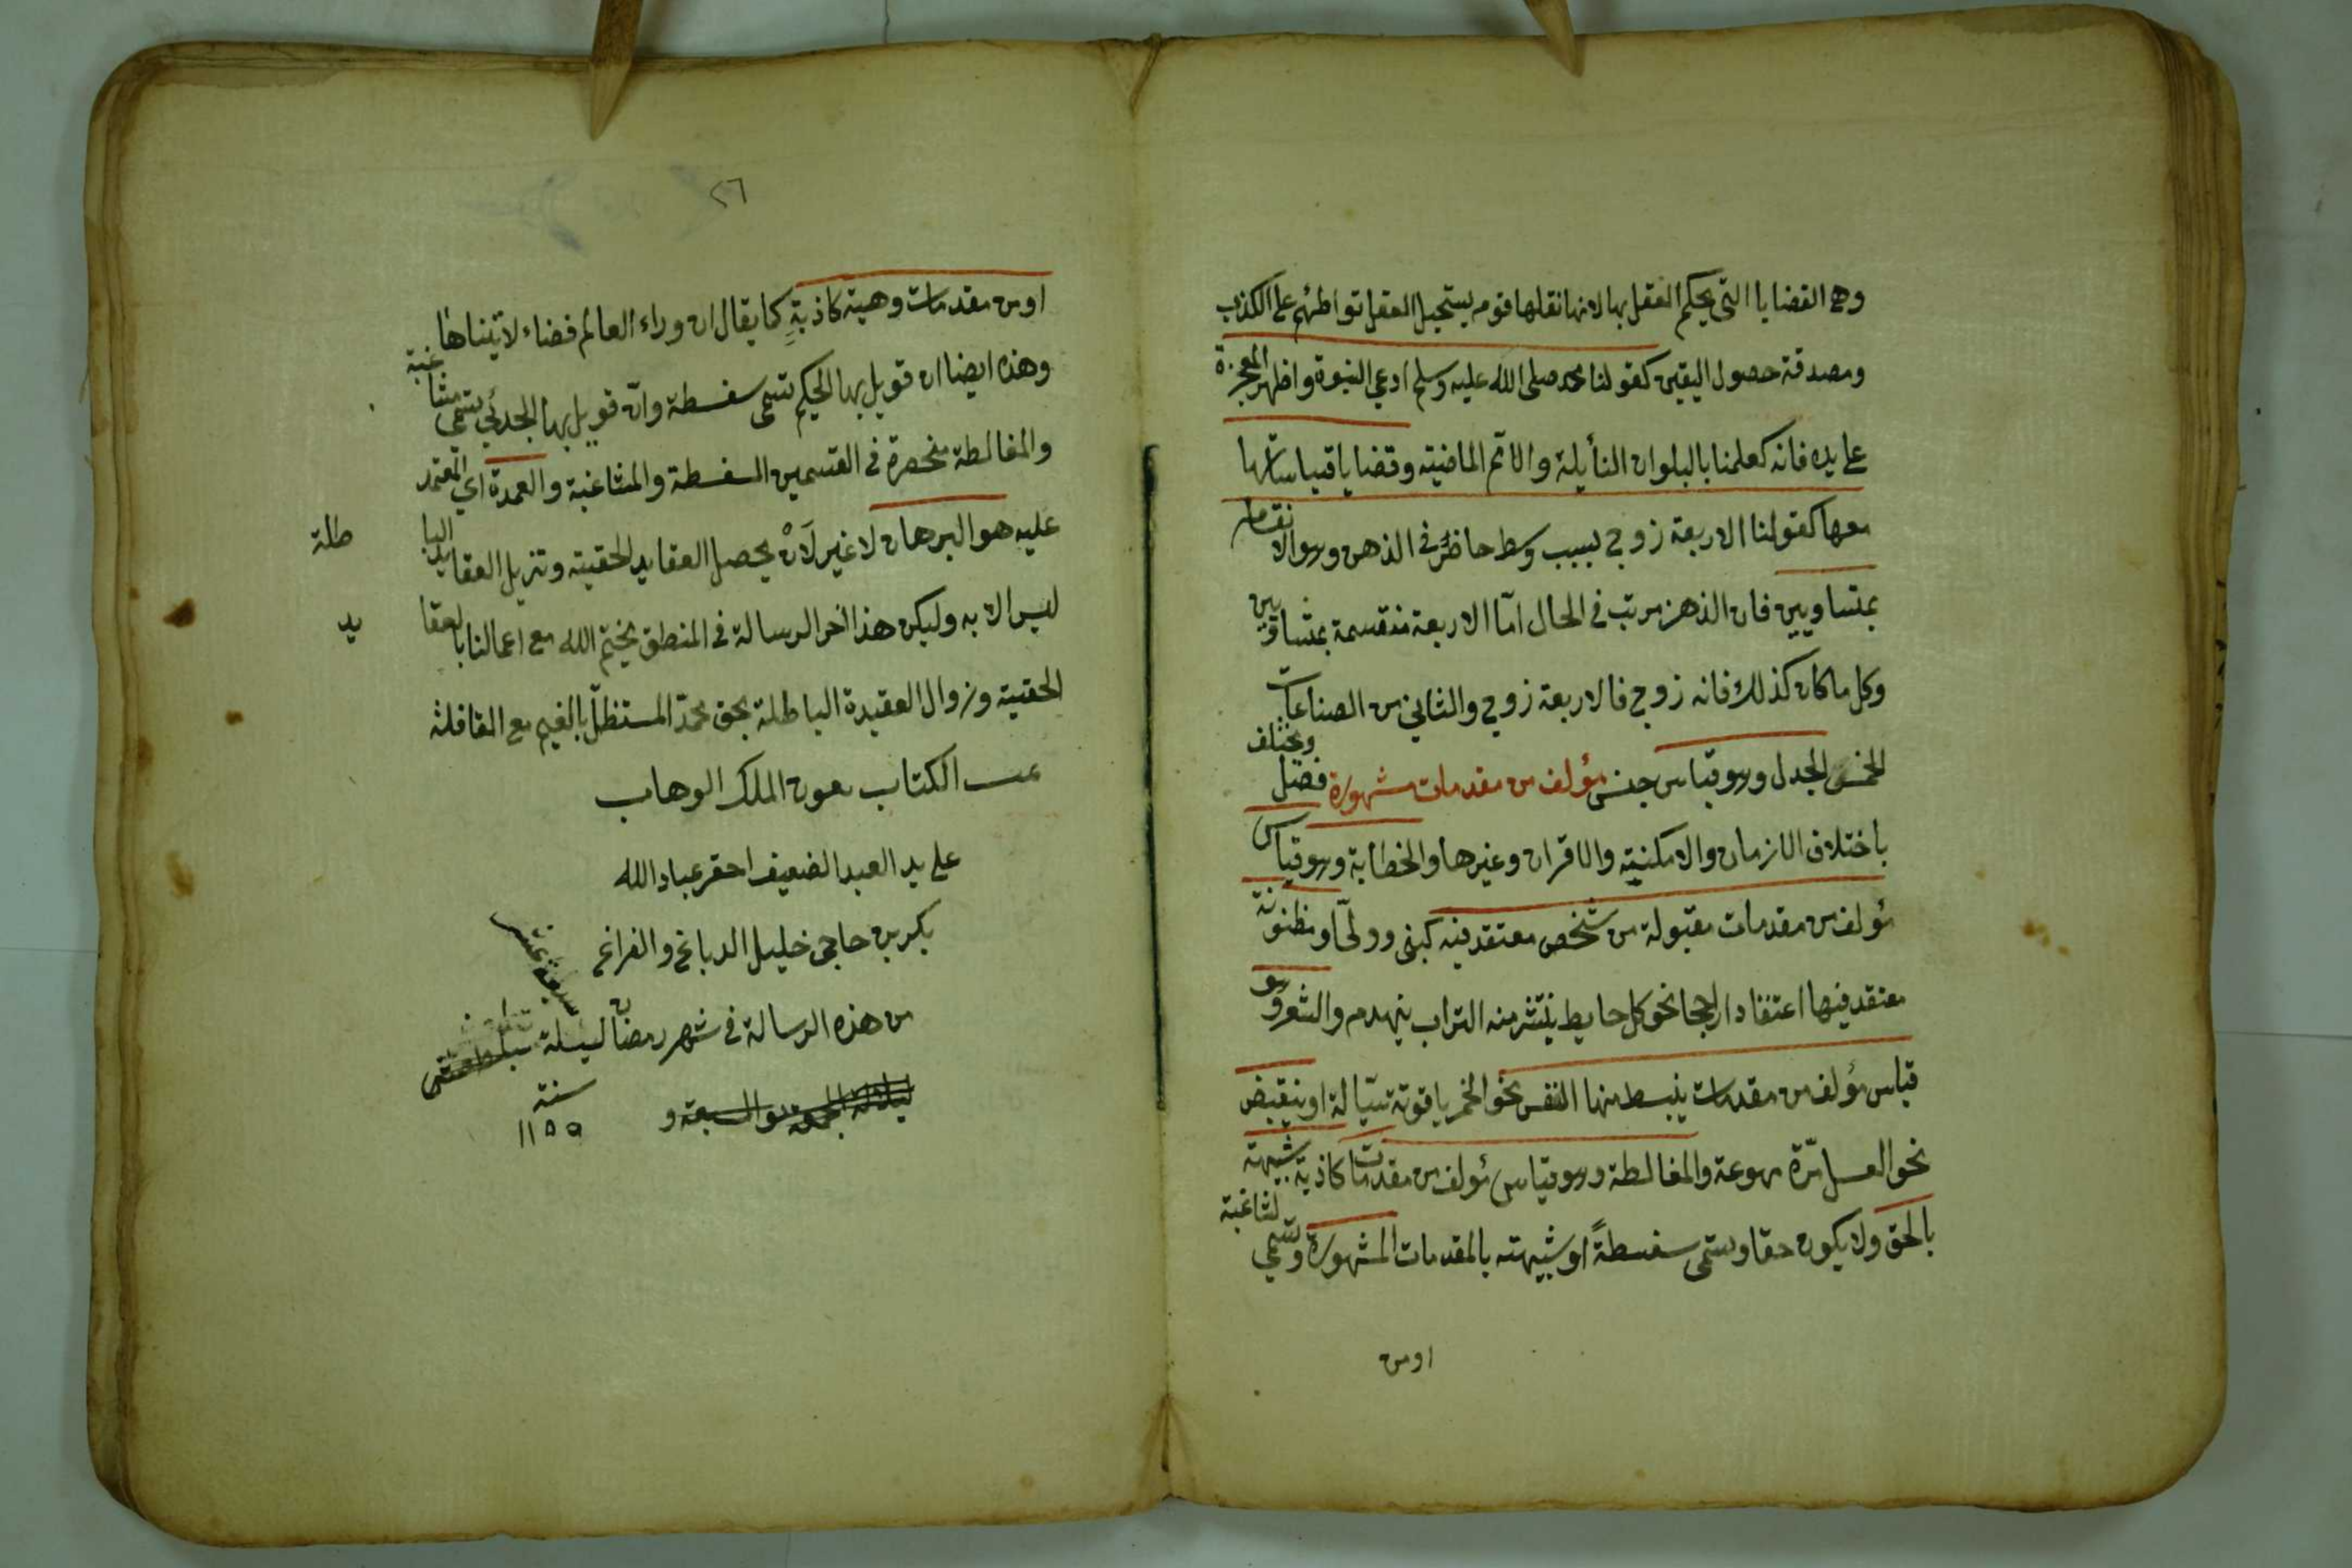 وهي القضايا التي يحكم العقل بها لانها نقلها قوم يستحيل العقل تواطئهم على الكذب
ومصدقة حصول اليقين كقولنا محمد صلى الله عليه وسلم ادعي النبوة واظهر المعجزة
على يده فانه كعلمنا بالبلوان النأيلة والامم الماضية وقضايا قياساتها
معها كقولنا الاربعة زوج بسبب وسط حاضر في الذهن وهو الانقسام
بمتساويين فان الذهن مرتب في الحال امّا الاربعة منقسمة بمتساويين
وكل ما كان كذلك فانه زوج فالاربعة زوج والثاني من الصناعات
الخمس الجدل وهو قياس جنس مؤلف من مقدمات مشهورة فصل ويختلف
باختلاف الازمان والامكنية والاقران وغيرها والخطابة وهو قياس
مؤلف من مقدمات مقبولة من شخص معتقد فيه كنبى وولىّ او مظنونة
معتقد فيها اعتقادا راجحا نحو كل حايط ينتثر منه التراب ينهدم والشعر وهو
قياس مؤلف من مقدمات ينبسط منها النفس نحو الخمر ياقوتة سيّالة او ينقبض
نحو العسل مرّة مهوعة والمغالطة وهو قياس مؤلف من مقدمات كاذبة شبيهة
بالحق ولا يكون حقا ويسمى سفسطةً او شبيهته بالمقدمات المشهورة وتسمي لشاغبة
او من
٢٦
او من مقدمات وهمية كاذبةٍ كما يقال ان وراء العالم فضاء لا يتناها
وهذه ايضا ان قوبل بها الحكيم تسمى سفسطة وان قوبل بها الجدلي تسمى مشاغبة
والمغالطة منحصرة في القسمين السفسطة والمشاغبة والعمدة اي المعتمد
عليه هو البرهان لا غير لَانْ يحصل العقايد الحقيته وتزيل العقايد الباطلة
ليس الا به وليكن هذا اخر الرسالة في المنطق يختم الله مع اعمالنا بالعقايد
الحقيته وزوال العقيدة الباطلة بحق محمّد المستظلّ بالغيم مع القافلة
تمت الكتاب بعون الملك الوهاب
على يد العبد الضعيف احقر عباد الله
بكر بن حاجى خليل الدباغي والفراغي
من هذه الرسالة في شهر رمضان ليسلة
سنة
١١٥٥